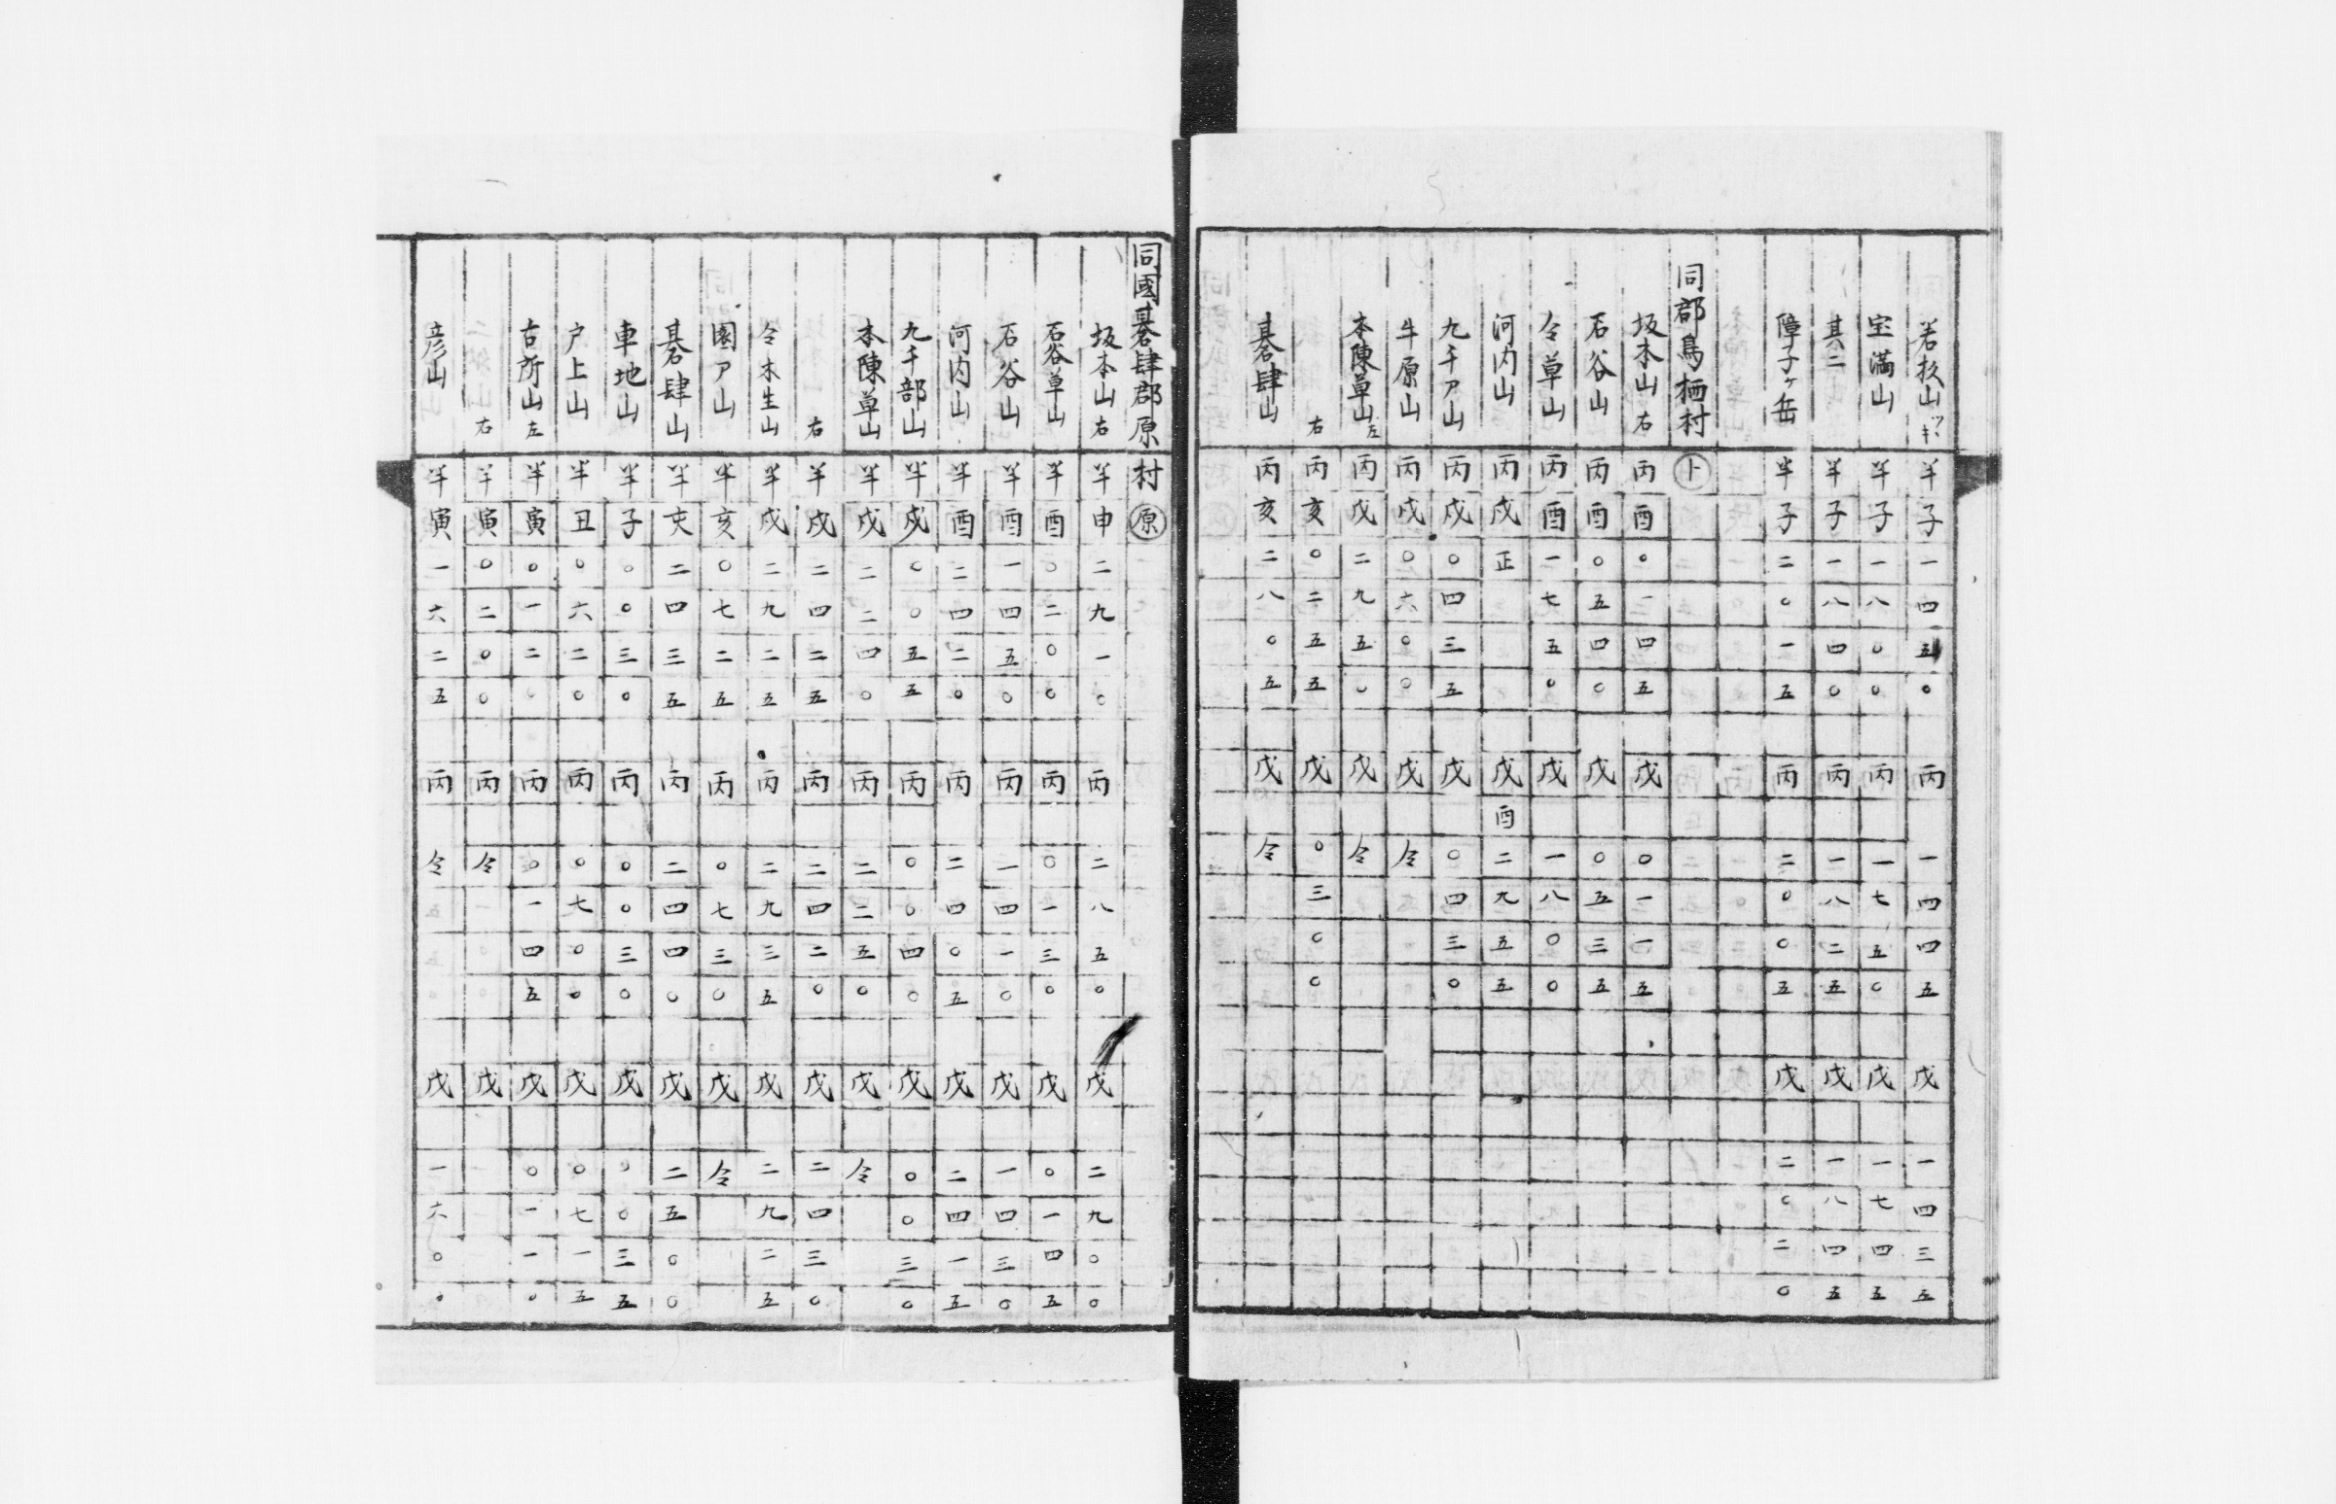 若杉山 ツキ 半子一四五〇 丙一四四五 戊一四三五
宝満山 半子一八〇〇 丙一七五〇 戊一七四五
其二 半子一八四〇 丙一八二五 戊一八四五
障子ヶ岳 半子二〇一五 丙二〇〇五 戊二〇二〇
同郡鳥栖村 ト
坂本山 右 丙酉〇一四五 戊〇一一五
石谷山 丙酉〇五四〇 戊〇五三五
令草山 丙酉一七五〇 戊一八〇〇
河内山 丙戌正 戊酉二九五五
九千ア山 丙戌〇四三五 戊〇四三〇
牛原山 丙戌〇六〇〇 戊令
本陳草山 左 丙戌二九五〇 戊令
右 丙亥〇二五五 戊〇三〇〇
碁肆山 丙亥二八〇五 戊令
同國碁肆郡原村 原
坂本山 右 半申二九一〇 丙二八五〇 戊二九〇〇
石谷草山 半酉〇二〇〇 丙〇一三〇 戊〇一四五
石谷山 半酉一四五〇 丙一四一〇 戊一四三〇
河内山 半酉二四二〇 丙二四〇五 戊二四一五
九千部山 半戌〇〇五五 丙〇〇四〇 戊〇〇三〇
本陳草山 半戌二二四〇 丙二二五〇 戊令
右 半戌二四二五 丙二四二〇 戊二四三〇
令木生山 半戌二九二五 丙二九三五 戊二九二五
園ア山 半亥〇七二五 丙〇七三〇 戊令
碁肆山 半亥二四三五 丙二四四〇 戊二五〇〇
車地山 半子〇〇三〇 丙〇〇三〇 戊〇〇三五
戸上山 半丑〇六二〇 丙〇七〇〇 戊〇七一五
古所山 左 半寅〇一二〇 丙〇一四五 戊〇一一〇
右 半寅〇二〇〇 丙令 戊
彦山 半寅一六二五 丙令 戊一六〇〇